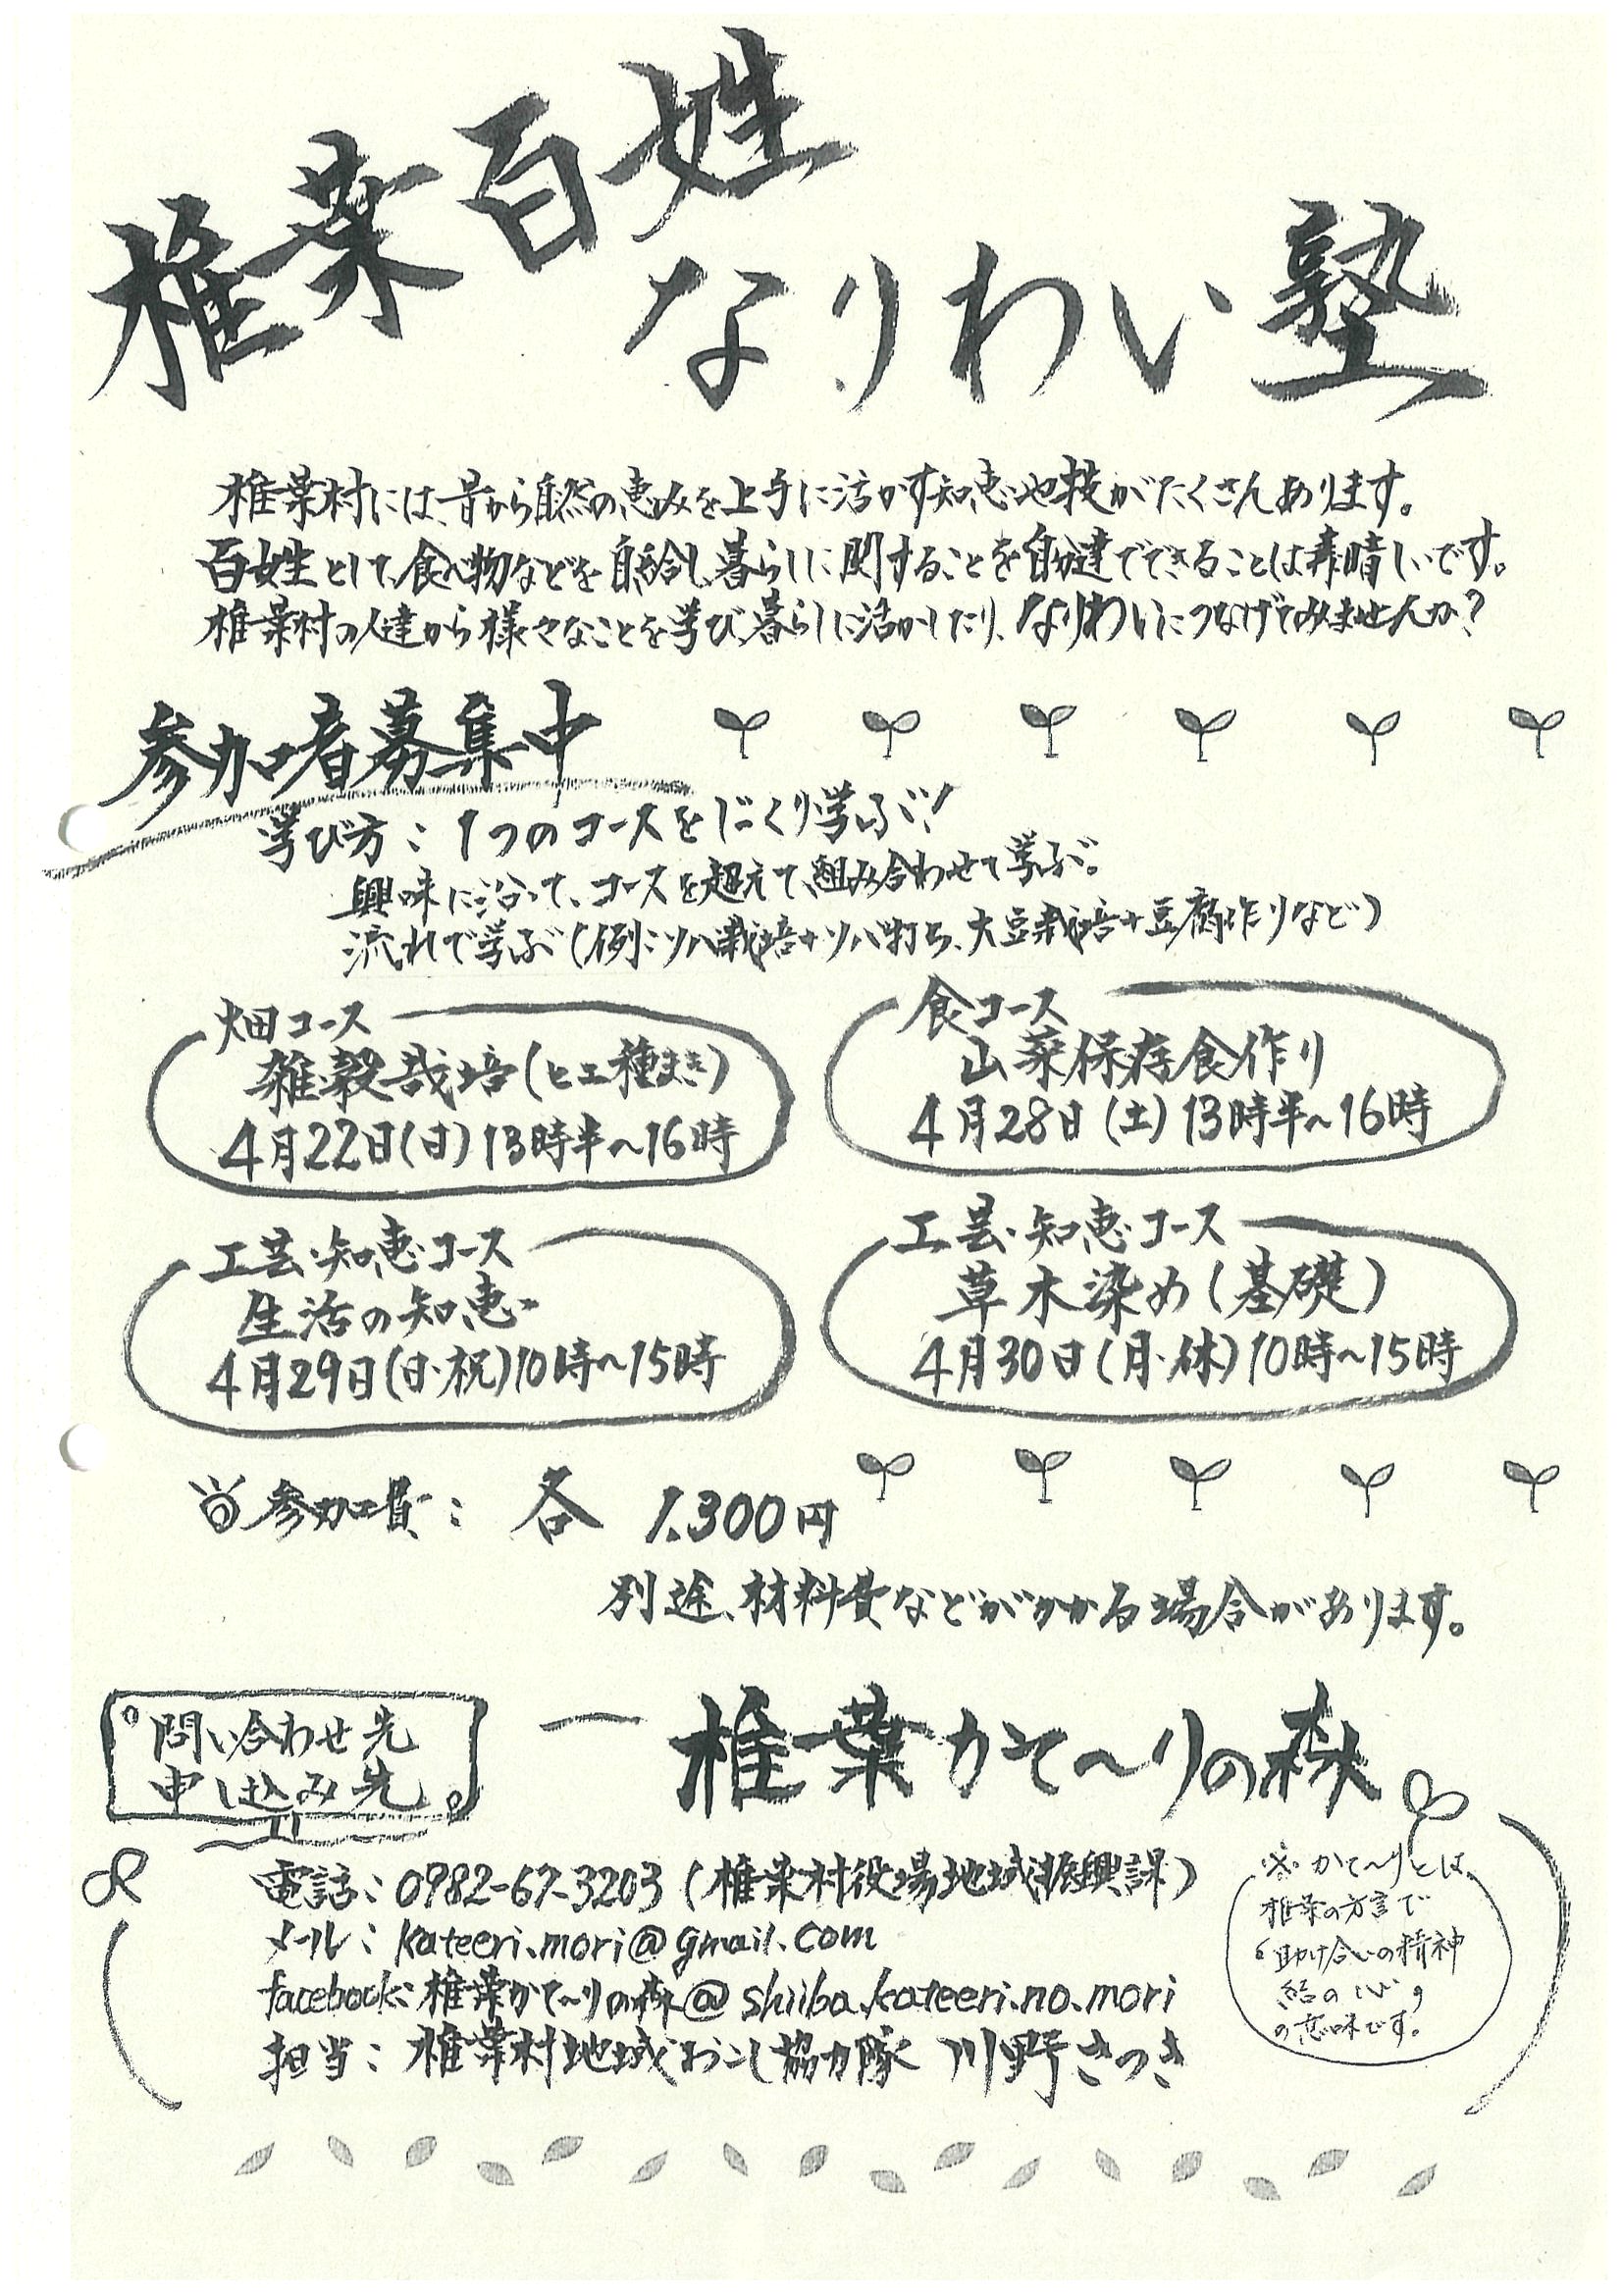 椎葉百姓
なりわい塾
椎葉村には、昔から自然の恵みを上手に活かす知恵や技がたくさんあります。
百姓として、食べ物などを自給し、暮らしに関することを自分達でできることは素晴しいです。
椎葉村の人達から様々なことを学び、暮らしに活かしたり、なりわいにつなげてみませんか?
参加者募集中
学び方：1つのコースをじっくり学ぶ!
興味に沿って、コースを超えて、組み合わせて学ぶ。
流れで学ぶ(例:ソバ栽培+ソバ打ち、大豆栽培+豆腐作りなど)
畑コース
雑穀栽培(ヒエ種まき)
4月22日(日)13時半〜16時
食コース
山菜保存食作り
4月28日(土)13時半〜16時
工芸・知恵コース
生活の知恵
4月29日(日・祝)10時〜15時
工芸・知恵コース
草木染め(基礎)
4月30日(月・休)10時〜15時
参加費：各 1,300円
別途、材料費などがかかる場合があります。
問い合わせ先
申し込み先
椎葉かて〜りの森
電話：0982-67-3203(椎葉村役場地域振興課)
メール：kateeri.mori@gmail.com
facebook：椎葉かて〜りの森@shiiba.kateeri.no.mori
担当：椎葉村地域おこし協力隊 川野さつき
※かて〜りとは、
椎葉の方言で
“助け合いの精神
結の心”
の意味です。